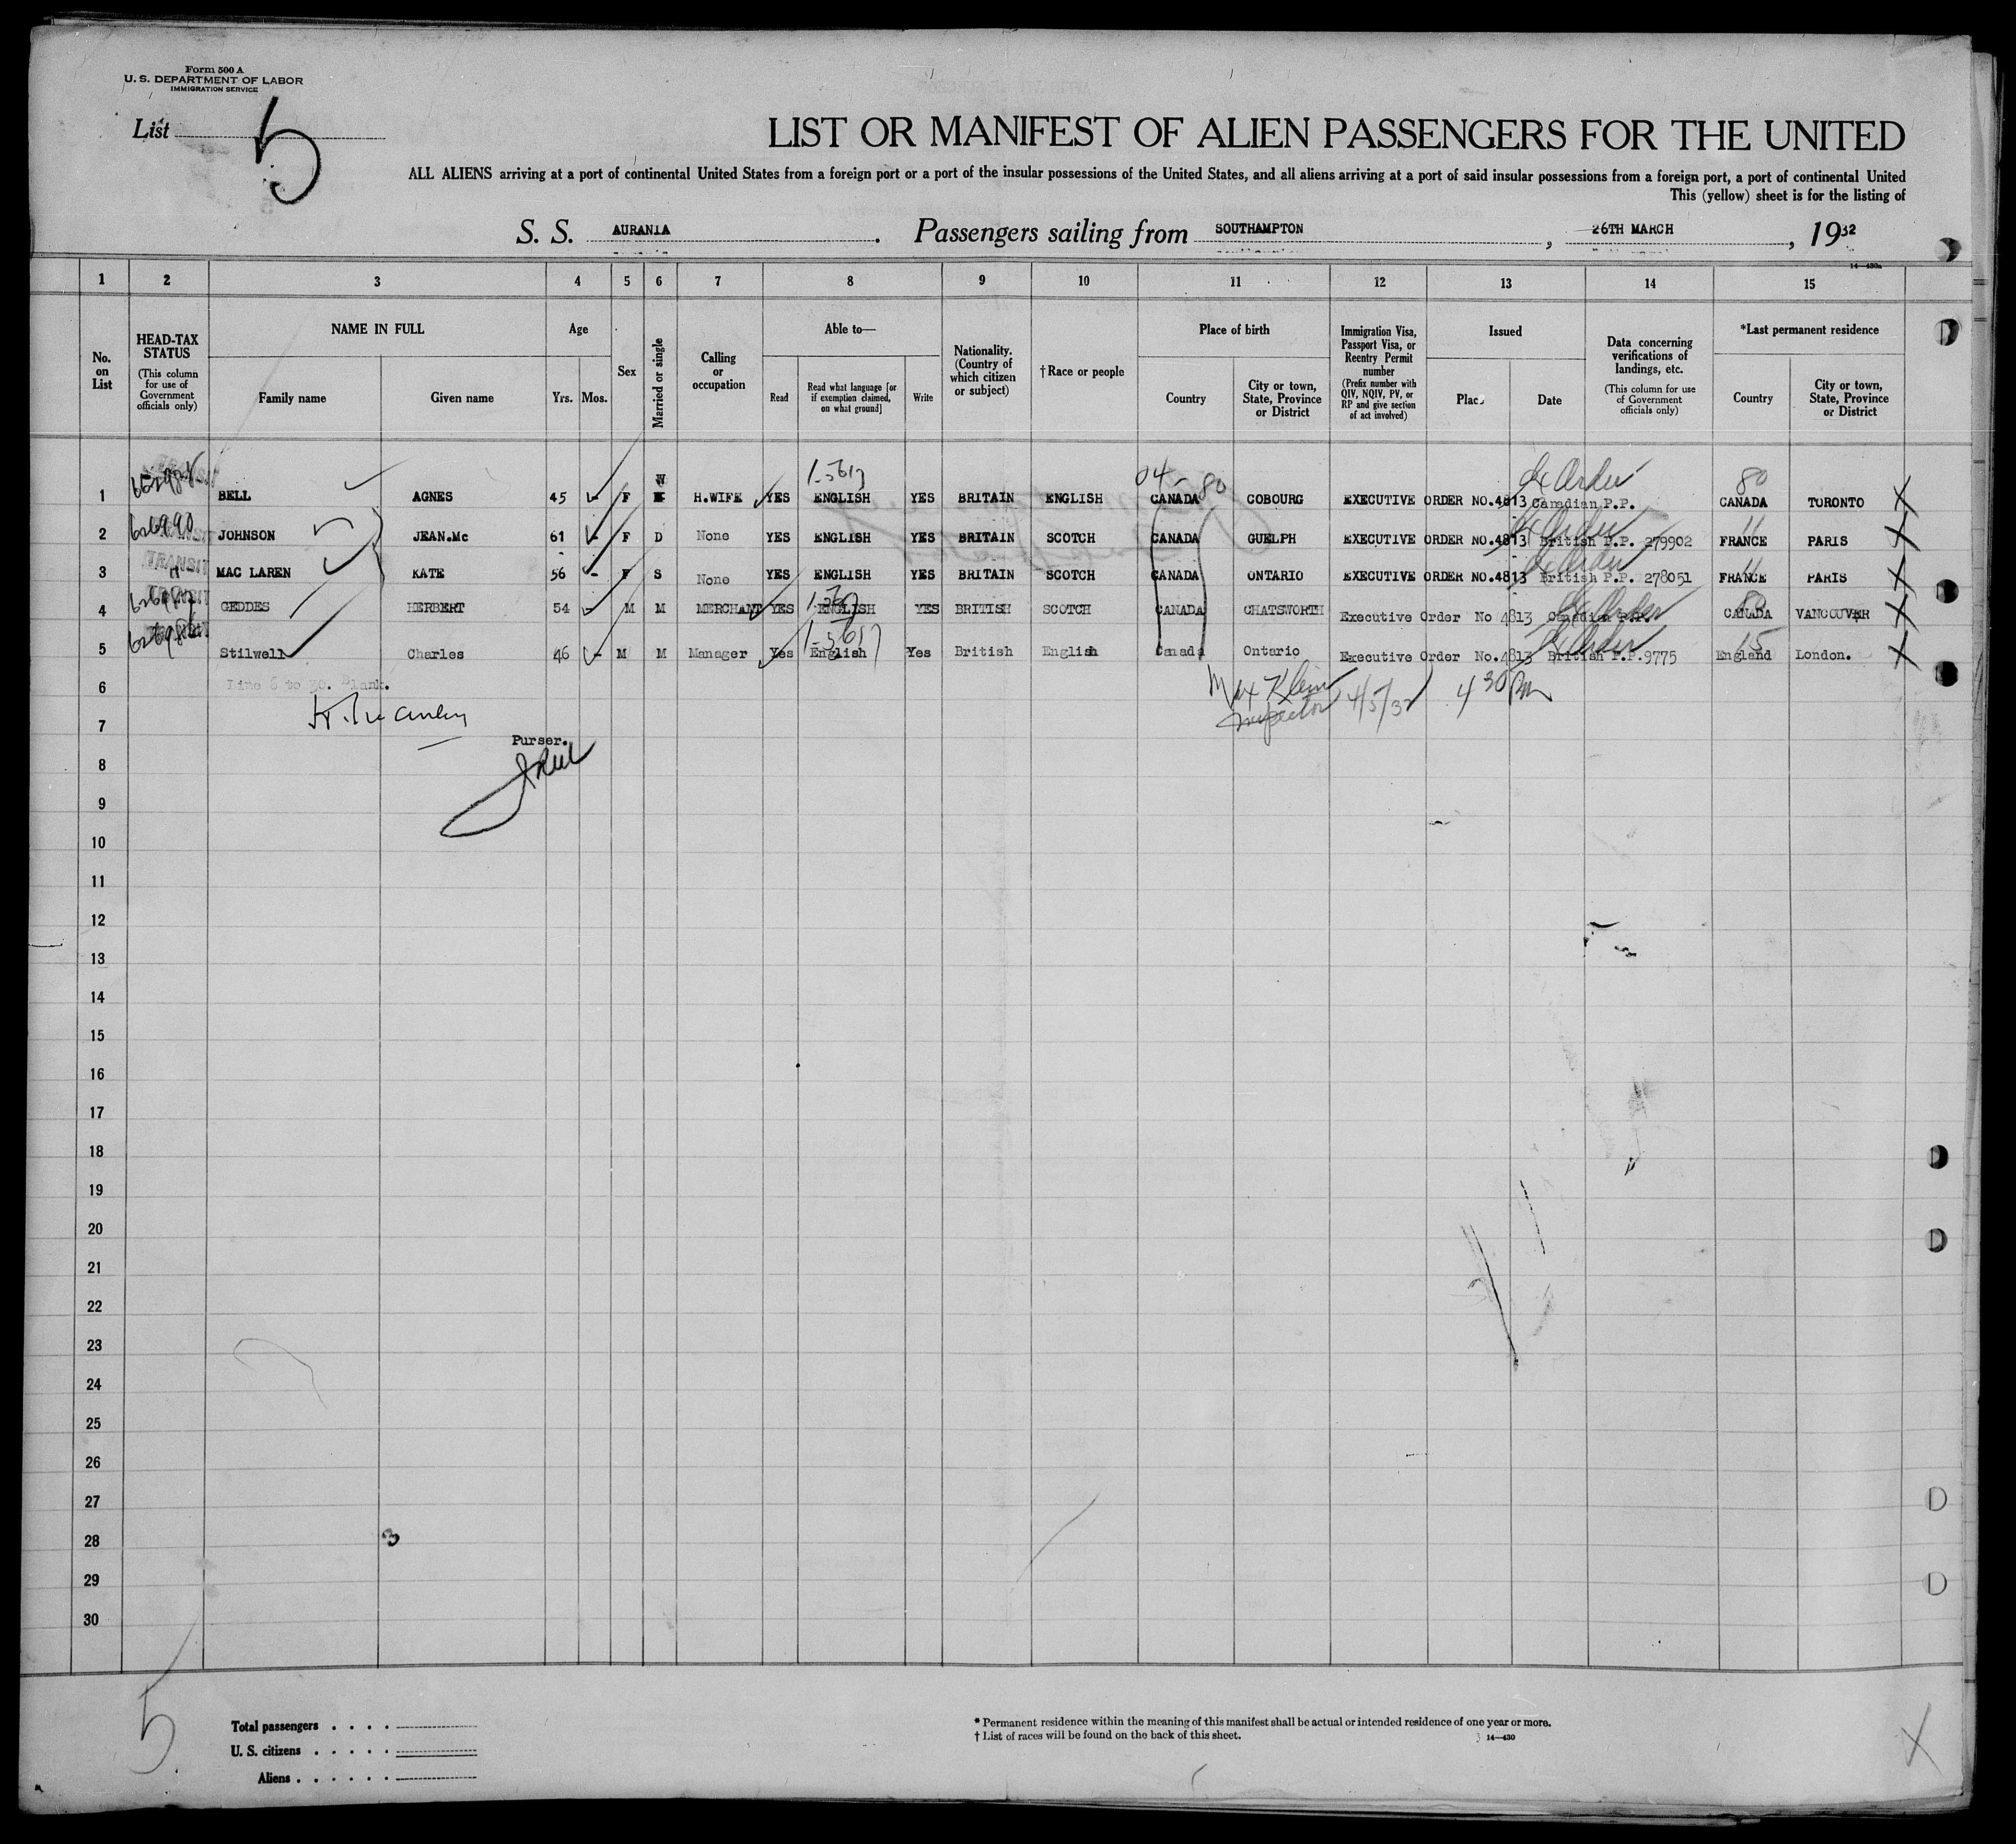 Form 500 A
U. S. DEPARTMENT OF LABOR
IMMIGRATION SERVICE
List 5
LIST OR MANIFEST OF ALIEN PASSENGERS FOR THE UNITED
ALL ALIENS arriving at a port of continental United States from a foreign port or a port of the insular possessions of the United States, and all aliens arriving at a port of said insular possessions from a foreign port, a port of continental United
This (yellow) sheet is for the listing of
S. S. AURANIA. Passengers sailing from SOUTHAMPTON, 26TH MARCH, 1932
14—430a
1 2 3 4 5 6 7 8 9 10 11 12 13 14 15
No. on List
HEAD-TAX STATUS
(This column for use of Government officials only)
NAME IN FULL
Family name
Given name
Age
Yrs. Mos.
Sex
Married or single
Calling or occupation
Able to—
Read
Read what language [or if exemption claimed, on what ground]
Write
Nationality. (Country of which citizen or subject)
†Race or people
Place of birth
Country
City or town, State, Province or District
Immigration Visa, Passport Visa, or Reentry Permit number
(Prefix number with QIV, NQIV, PV, or RP and give section of act involved)
Issued
Place
Date
Data concerning verifications of landings, etc.
(This column for use of Government officials only)
*Last permanent residence
Country
City or town, State, Province or District
04 - 80 Ex Order 80
1 TRANSIT BELL AGNES 45 F W H.WIFE YES ENGLISH YES BRITAIN ENGLISH CANADA COBOURG EXECUTIVE ORDER NO.4813 Canadian P.P. CANADA TORONTO
Ex Order 11
2 626990 TRANSIT JOHNSON JEAN.Mc 61 F D None YES ENGLISH YES BRITAIN SCOTCH CANADA GUELPH EXECUTIVE ORDER NO.4813 British P.P. 279902 FRANCE PARIS
Ex Order 11
3 TRANSIT MAC LAREN KATE 56 F S None YES ENGLISH YES BRITAIN SCOTCH CANADA ONTARIO EXECUTIVE ORDER NO.4813 British P.P. 278051 FRANCE PARIS
Ex Order 80
4 TRANSIT GEDDES HERBERT 54 M M MERCHANT YES ENGLISH YES BRITISH SCOTCH CANADA CHATSWORTH Executive Order No 4813 Canadian P.P. CANADA VANCOUVER
Ex Order 15
5 Stilwell Charles 46 M M Manager Yes English Yes British English Canada Ontario Executive Order No.4813 British P.P.9775 England London.
6 Line 6 to 30. Blank.
Max Klein
Inspector 4/5/32 4 30 PM
7
Purser.
8
9
10
11
12
13
14
15
16
17
18
19
20
21
22
23
24
25
26
27
28 3
29
30
5
Total passengers
U. S. citizens
Aliens
* Permanent residence within the meaning of this manifest shall be actual or intended residence of one year or more.
† List of races will be found on the back of this sheet.
14—430
X